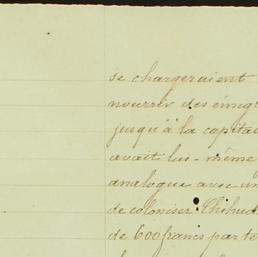 se chargeraient
nourrir des émig
jusqu'à la capita
avait lui-même
analogue avec un
de coloniser Chihua
de 600 francs par tê